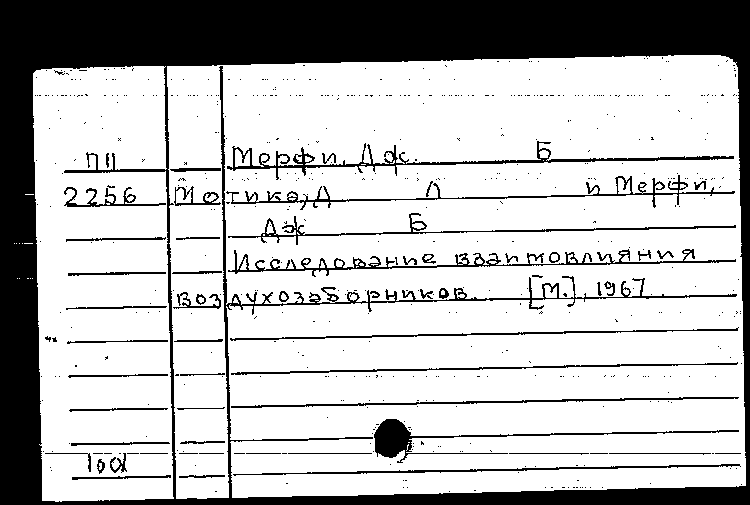 ПП Мерфи, Дж. Б
2256 Мотико, Д Л и Мерфи,
Дж Б
Исследование взаимовлияния
воздухозаборников. [М.], 1967